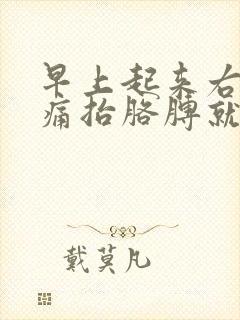 早上起来右
痛抬胳膊就
戴莫凡